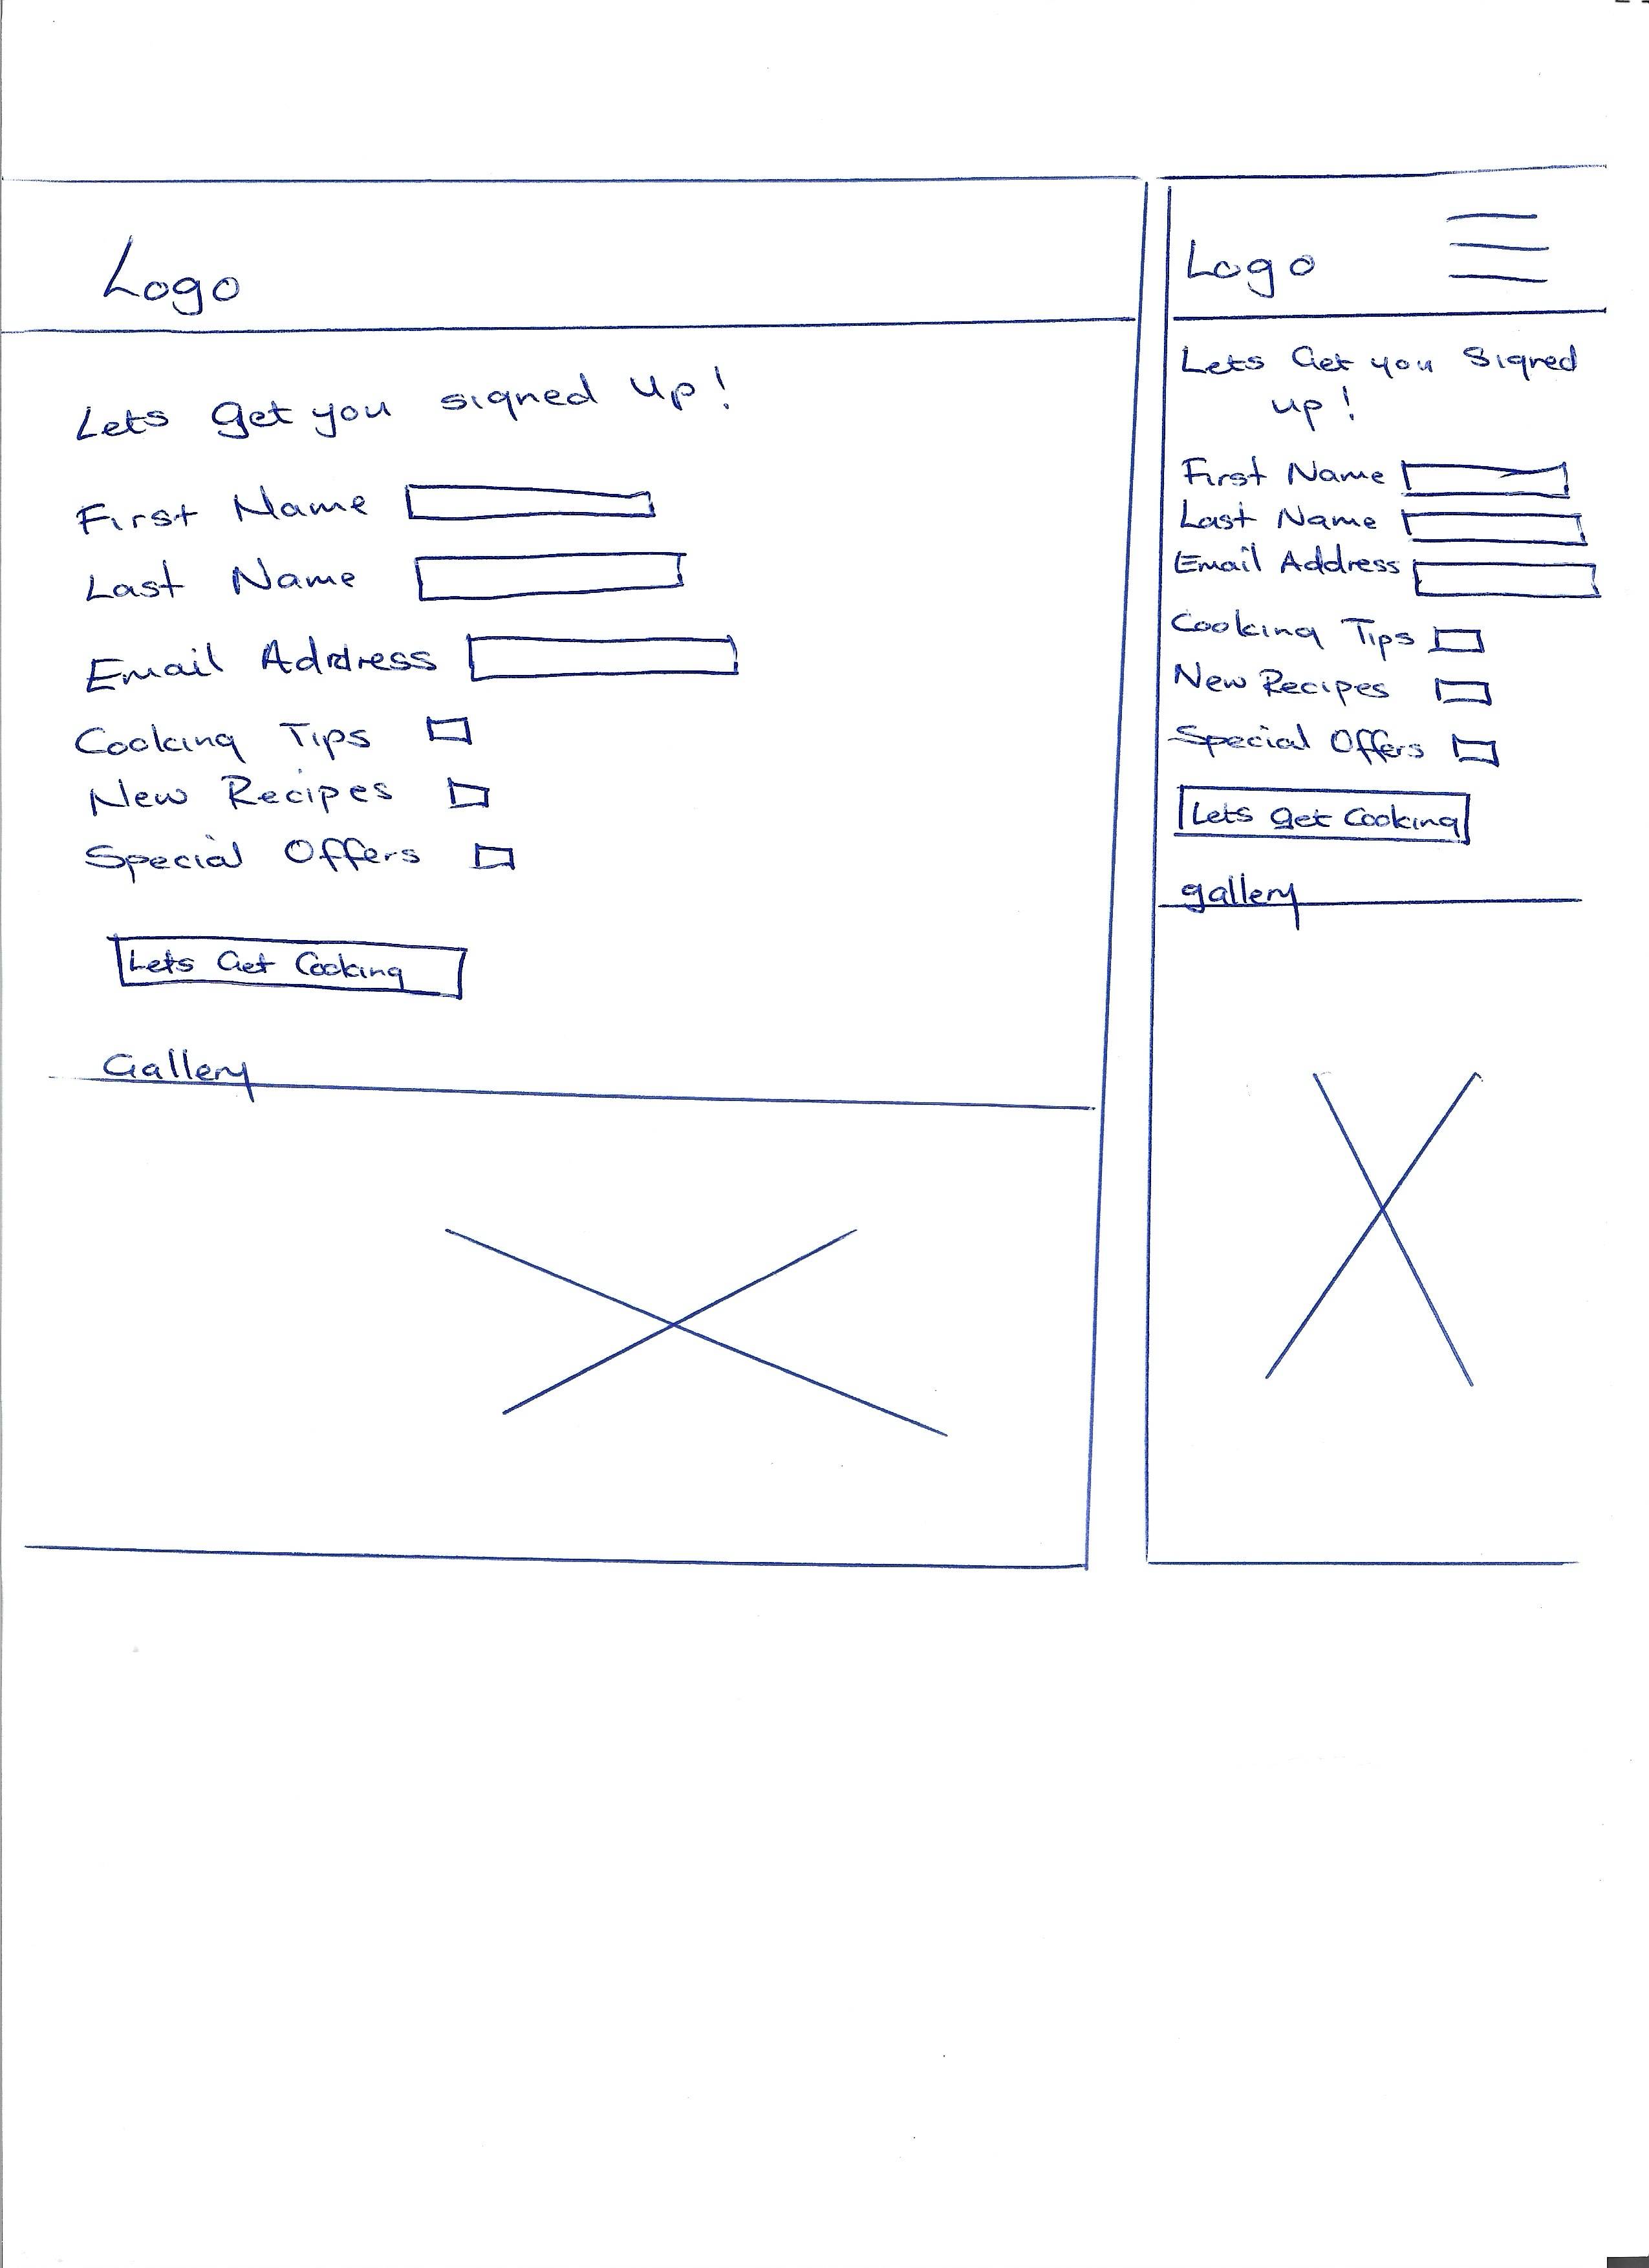 Logo
Lets get you signed up!
First Name
Last Name
Email Address
Cooking Tips
New Recipes
Special Offers
Lets Get Cooking
Gallery
Logo
Lets Get you Signed
up!
First Name
Last Name
Email Address
Cooking Tips
New Recipes
Special Offers
Lets get Cooking
gallery